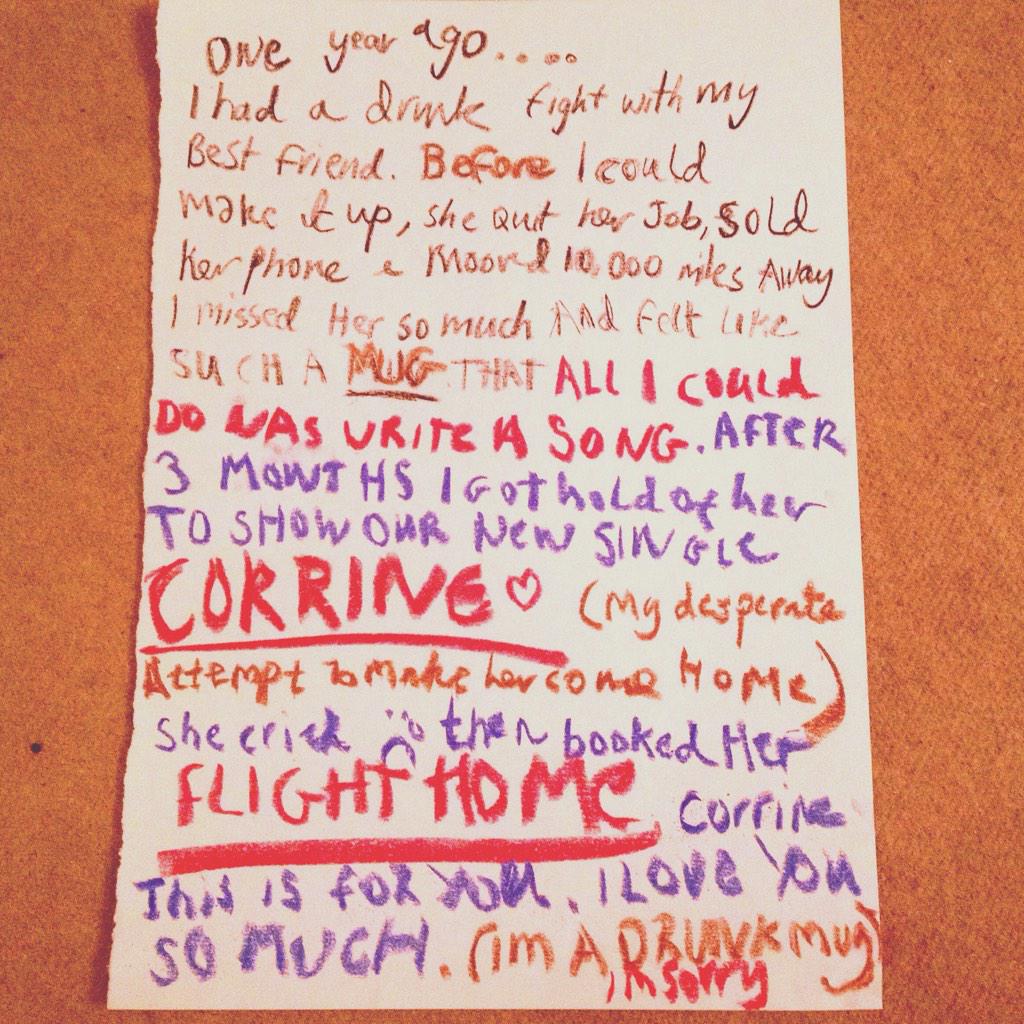 One year ago.....
I had a drunk fight with my
Best friend. Before I could
make it up, she quit her Job, sold
her phone & Moved 10,000 miles Away
I missed Her so much And felt like
SUCH A MUG THAT ALL I COULD
DO WAS WRITE A SONG. AFTER
3 MONTHS I Got hold of her
TO SHOW OUR NEW SINGLE
CORRINE ♡ (My desperate
Attempt to make her come HOME)
She cried :( then booked Her
FLIGHT HOME Corrine
This IS FOR YOU. I LOVE YOU
SO MUCH. (im A DRUNK mug)
I'm sorry